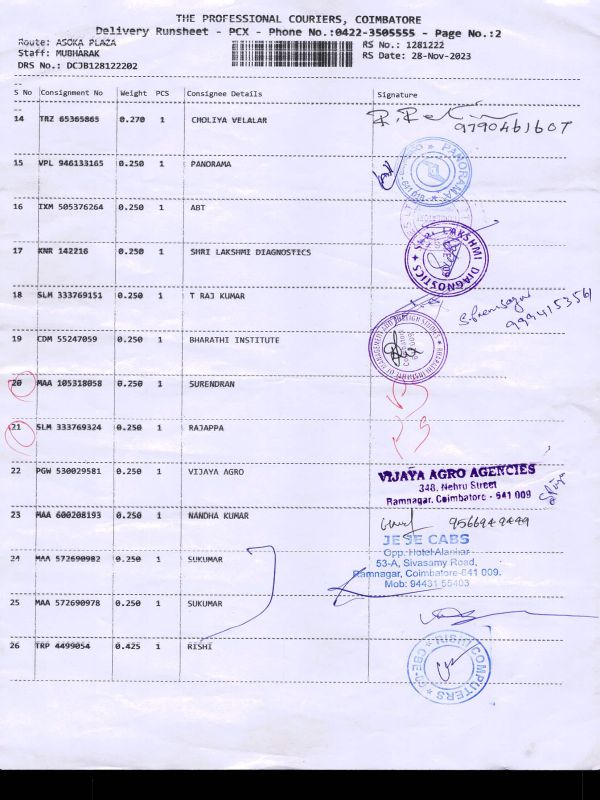 THE PROFESSIONAL COURIERS, COIMBATORE
Delivery Runsheet - PCX - Phone No.:0422-3505555 - Page No.:2
Route: ASOKA PLAZA RS No.: 1281222
Staff: MUBHARAK RS Date: 28-Nov-2023
DRS No.: DCJB128122202
S No Consignment No Weight PCS Consignee Details Signature
14 TRZ 65365865 0.270 1 CHOLIYA VELALAR
9790461607
15 VPL 946133165 0.250 1 PANORAMA
PANORAMA
16 IXM 505376264 0.250 1 ABT
17 KNR 142216 0.250 1 SHRI LAKSHMI DIAGNOSTICS
SHRI LAKSHMI DIAGNOSTICS
18 SLM 333769151 0.250 1 T RAJ KUMAR
19 CDM 55247059 0.250 1 BHARATHI INSTITUTE
20 MAA 105318058 0.250 1 SURENDRAN
21 SLM 333769324 0.250 1 RAJAPPA
22 PGW 530029581 0.250 1 VIJAYA AGRO
VIJAYA AGRO AGENCIES
348, Nehru Street
Ramnagar, Coimbatore - 641 009
23 MAA 600208193 0.250 1 NANDHA KUMAR
9566949449
JE SE CABS
Opp. Hotel Alankar
53-A, Sivasamy Road,
Ramnagar, Coimbatore-641 009.
Mob: 94431 55403
24 MAA 572690982 0.250 1 SUKUMAR
25 MAA 572690978 0.250 1 SUKUMAR
26 TRP 4499054 0.425 1 RISHI
RISHI COMPUTERS